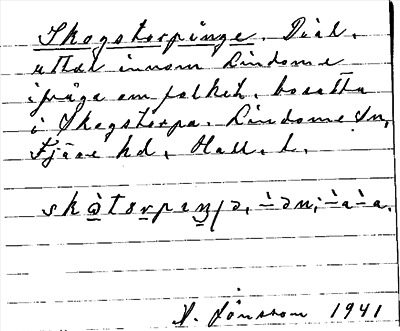 Skogstorpinge. Dial.
uttal innom Lindome
ifråga om folket, bosatta
i Skogstorpa. Lindome sn,
Fjäre hd, Hall. l.
Jönsson 1941